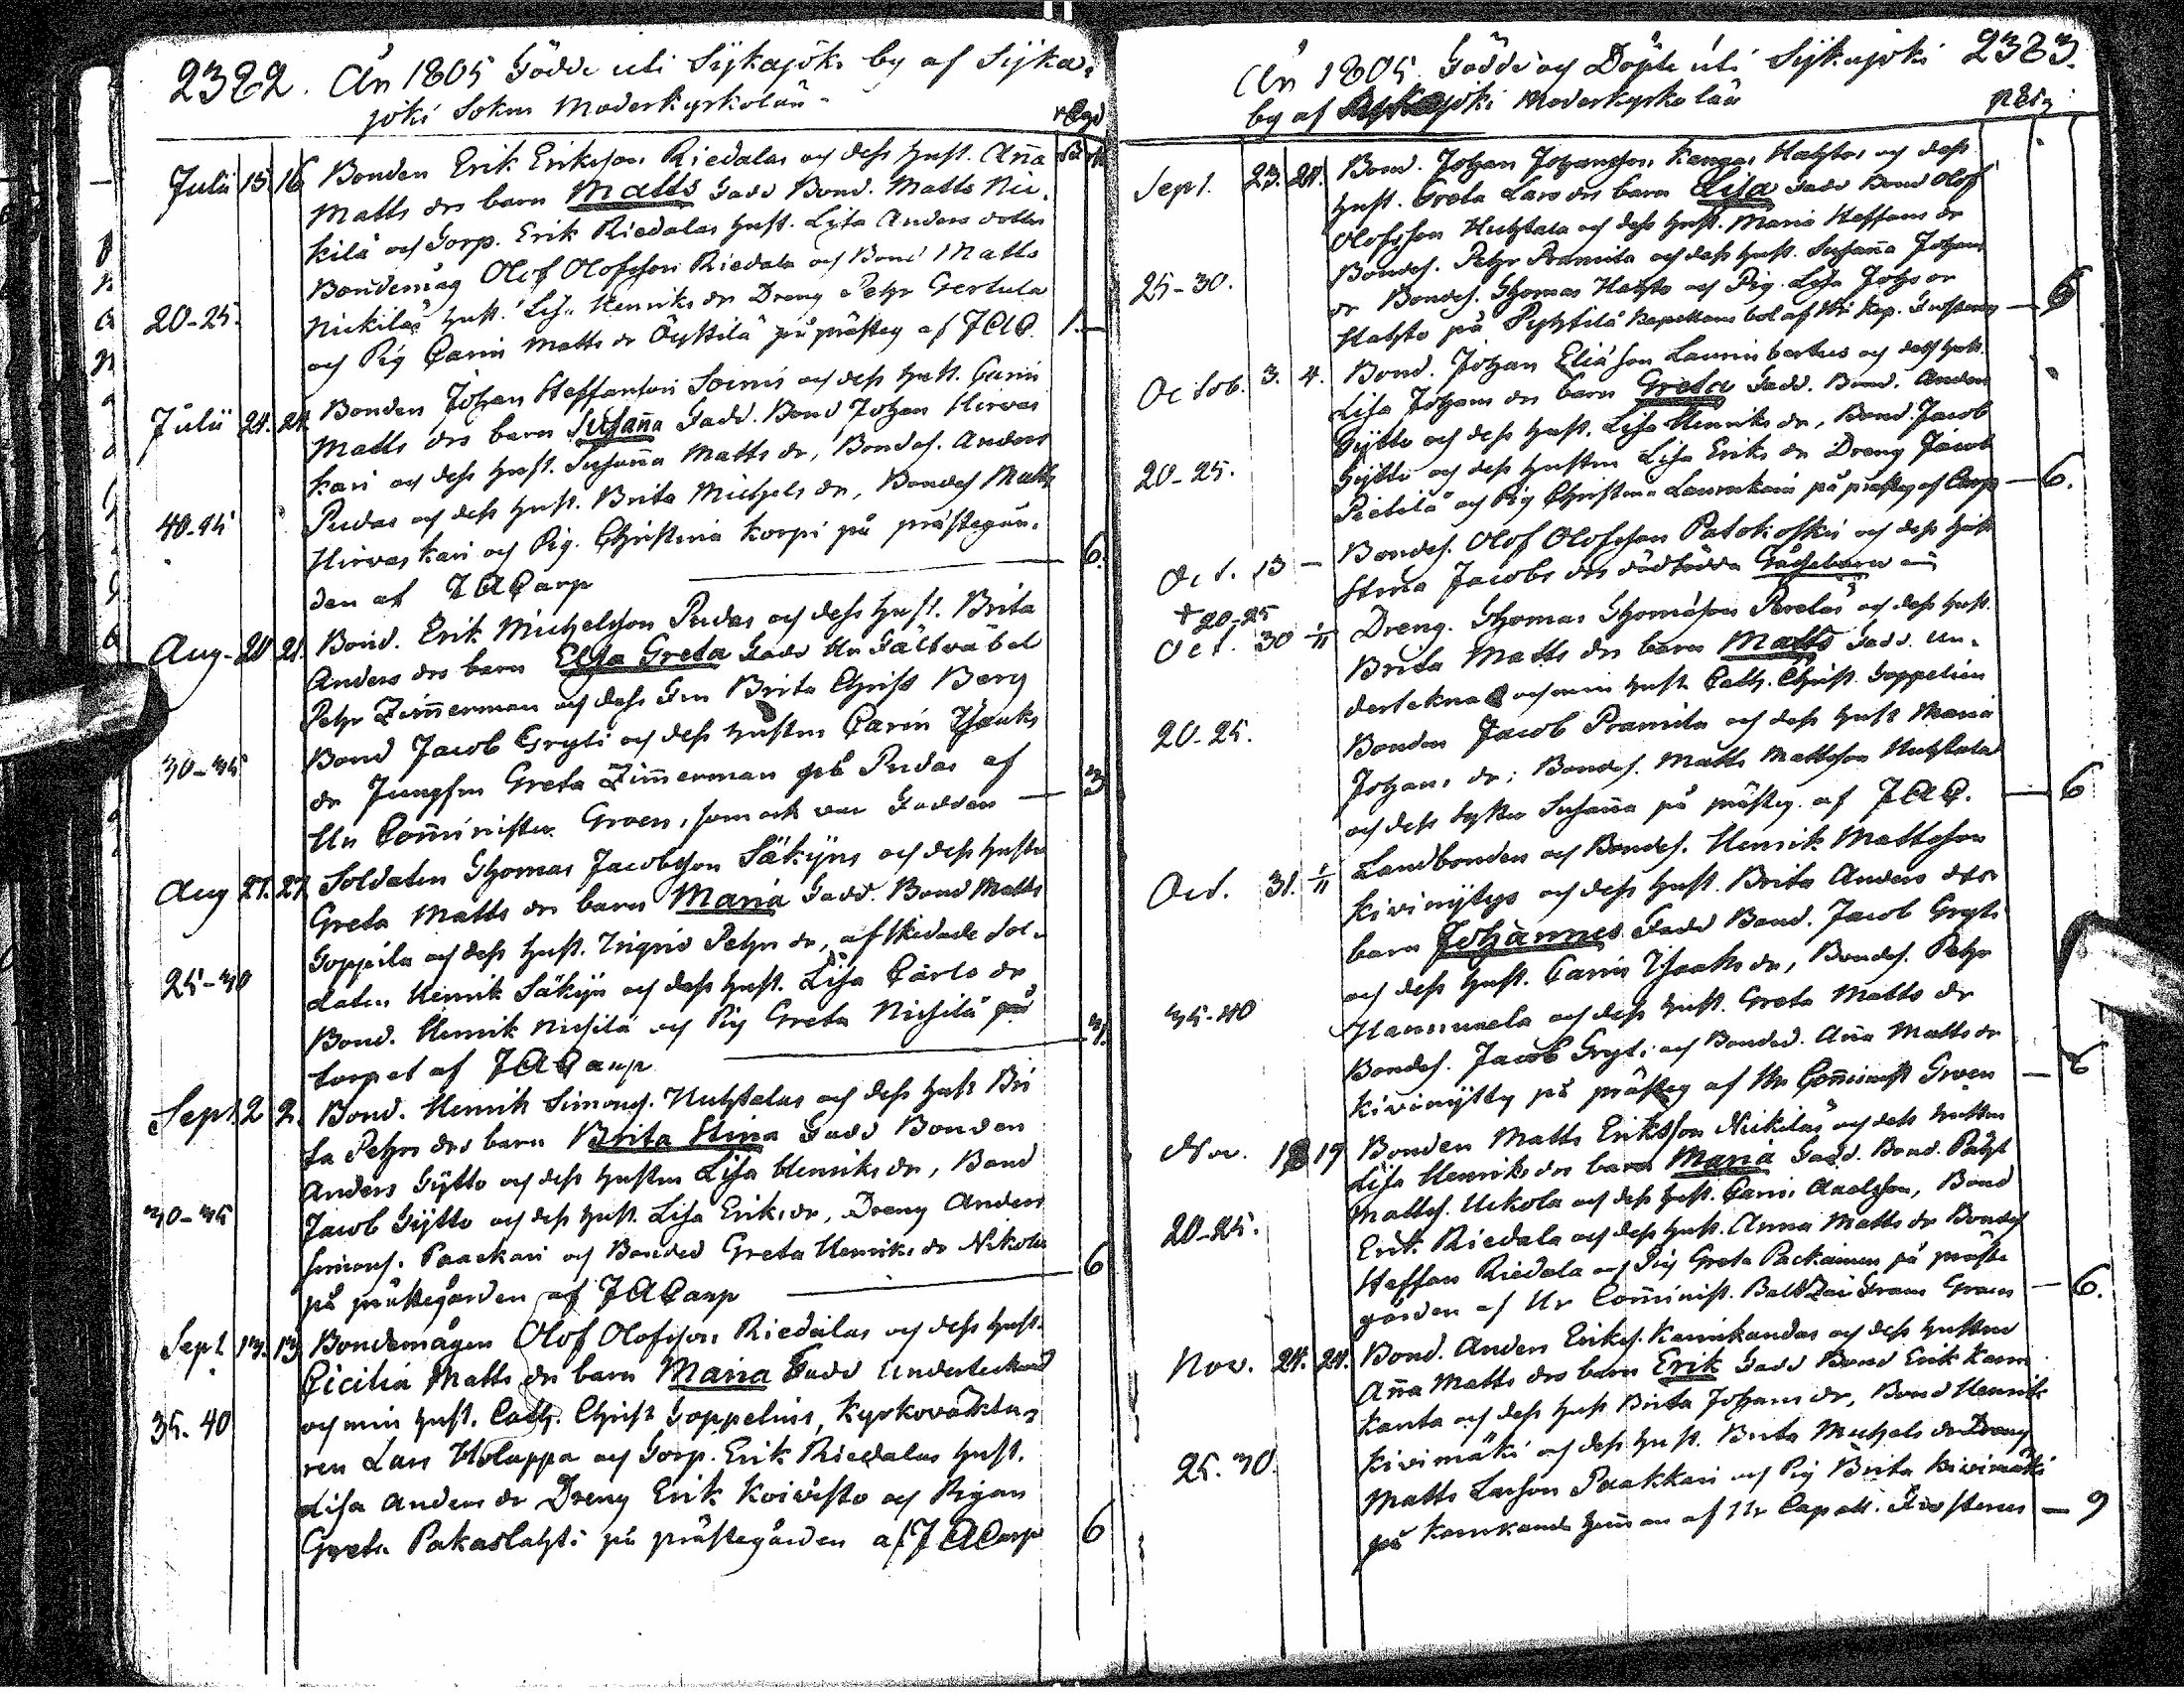 2382. Ån 1805 Födde uti Sijkajoki by af Sijka-
joki Sokn Moderkyrkolän
Julii 15 16 Bonden Erik Eriksson Riedalas och dess hust. Anna
Matts drs barn Matts Fadd Bond. Matts Nic-
kilä och Torp. Erik Riedalas hust. Lisa Anders dotter
Bondemåg Olof Olofsson Riedala och Bond Matts
20-25. Nickiläs hust. Lisa Henriks dr Dreng Petr Gertula
och Pig Carin Matts dr Öysttilä på prästeg af JAC. 1.—
Bonden Johan Steffansson Soinis och dess hust. Carin
Julii 24. 24. Matts drs barn Susanna Fadd. Bond Johan Hirvas
kari och dess hust. Susanna Matts dr, Bondes. Anders
Pudas och dess hust. Brita Michels dr, Bondes Matts
40-45 Hirvaskari och Pig. Christina Korpi på prästegår-
den af JACarp — 6.
Aug. 20 21. Bond. Erik Michelsson Pudas och dess hust. Brita
Anders drs barn Elsa Greta Fadd Hr Fältväbel
Petr Zimmerman och dess Fru Brita Christ Berg
Bond Jacob Gryti och dess hustru Carin Isaaks
30-35 dr Jungfru Greta Zimmerman på Pudas af
Hr Comminister Groen, som ock var Fadder — 3
Aug 27. 27 Soldaten Thomas Jacobsson Säkijns och dess hustru
Greta Matts drs barn Maria Fadd. Bond Matts
Toppila och dess hust. Ingrid Petrs dr, afskedade sol-
25-30 daten Henrik Säkijn och dess hust. Lisa Carls dr
Bond. Henrik Nisilä och Pig Greta Nisilä på
torpet af JACarp
Sept. 2 2. Bond. Henrik Simons. Huhtalas och dess hust Bri
ta Petrs drs barn Brita Stina Fadd Bonden
Anders Gytto och dess hustru Lisa Henriks dr, Bond
30-35 Jacob Gytto och dess hust. Lisa Eriks dr, Dreng Anders
Simons. Paackari och Bonded Greta Henriks dr Nikola
på prästegården af JACarp — 6
Sept 13. 13 Bondemågen Olof Olofsson Riedalas och dess hust.
Cicilia Matts drs barn Maria Fadd Undertecknad
35. 40 och min hust. Cath. Christ Toppelius, Kyrkovåkta-
ren Lars Holappa och Torp. Erik Riedalas hust.
Lisa Anders dr Dreng Erik Koivisto och Pigan
Greta Pakaslahti på prästegården af JACarp 6
Ån 1805. Födde och Döpte uti Sijkajoki 2383.
by af joki Moderkyrkolän
Sept. 23. 24. Bond. Johan Johansson Kangas Hahtos och dess
hust. Greta Lars drs barn Lisa Fadd Bond Olof
Olofsson Huhtala och dess hust. Maria Steffans dr
25-30. Bondes. Petr Pramila och dess hust. Susanna Johans
dr Bondes. Thomas Hahto och Pig. Lisa Johs dr
Hahto på Pyhtilä Kapellans bol af — 6
Octob. 3. 4. Bond. Johan Eliasson Laurinbertus och dess hust.
Lisa Johans drs barn Greta Fadd. Bond. Anders
Gytto och dess hust. Lisa Henriks dr, Bond. Jacob
20-25. Gytto och dess hustru Lisa Eriks dr Dreng Jacob
Pietilä och Pig Christina Laurikain på prästeg af Carp — 6.
Oct. 13 — Bondes. Olof Olofsson Patokoskis och dess hust
Stina Jacobs drs dödfödda Gåssebarn
+ 20-25
Oct. 30 1/11 Dreng. Thomas Thomasson Perelas och dess hust.
Brita Matts drs barn Matts Fadd. un-
dertekna och min hust. Cath. Christ. Toppelius
20-25. Bonden Jacob Pramila och dess hust Maria
Johans dr; Bondes. Matts Mattsson Huhtala
och dess syster Susanna på prästeg. af JAC. — 6
Oct. 31. 1/11 Landbonden och Bondes. Henrik Mattsson
Kivinijtys och dess hust. Brita Anders drs
barn Johannes Fadd Bond. Jacob Gryti
och dess hust. Carin Isaaks dr, Bondes. Petr
35-40 Hannunela och dess hust. Greta Matts dr
Bondes. Jacob Gryti och Bonded. Anna Matts dr
Kivinijtty på prästeg af Hr Comminist Groen — 6
Nov. 18 19 Bonden Matts Eriksson Nickiläs och dess hustru
Lisa Henriks drs barn Maria Fadd. Bond.
Matts. Uckola och dess hust. Carin, Bond
20-25. Erik Riedala och dess hust. Anna Matts dr Bondes
Steffan Riedala och Pig Greta Packainen på präste
gården af Hr Comminist. Baltzar Groen — 6.
Nov. 24. 24. Bond. Anders Eriks. Karinkandas och dess hustru
Anna Matts drs barn Erik Fadd Bond Erik Karin
kanta och dess hust Brita Johans dr, Bond Henrik
Kivimäki och dess hust. Brita Michels dr Dreng
25. 30. Matts Larsson Paakkari och Pig Brita Kivimäki
på Karinkanda af Hr Capell. Frosterus — 9